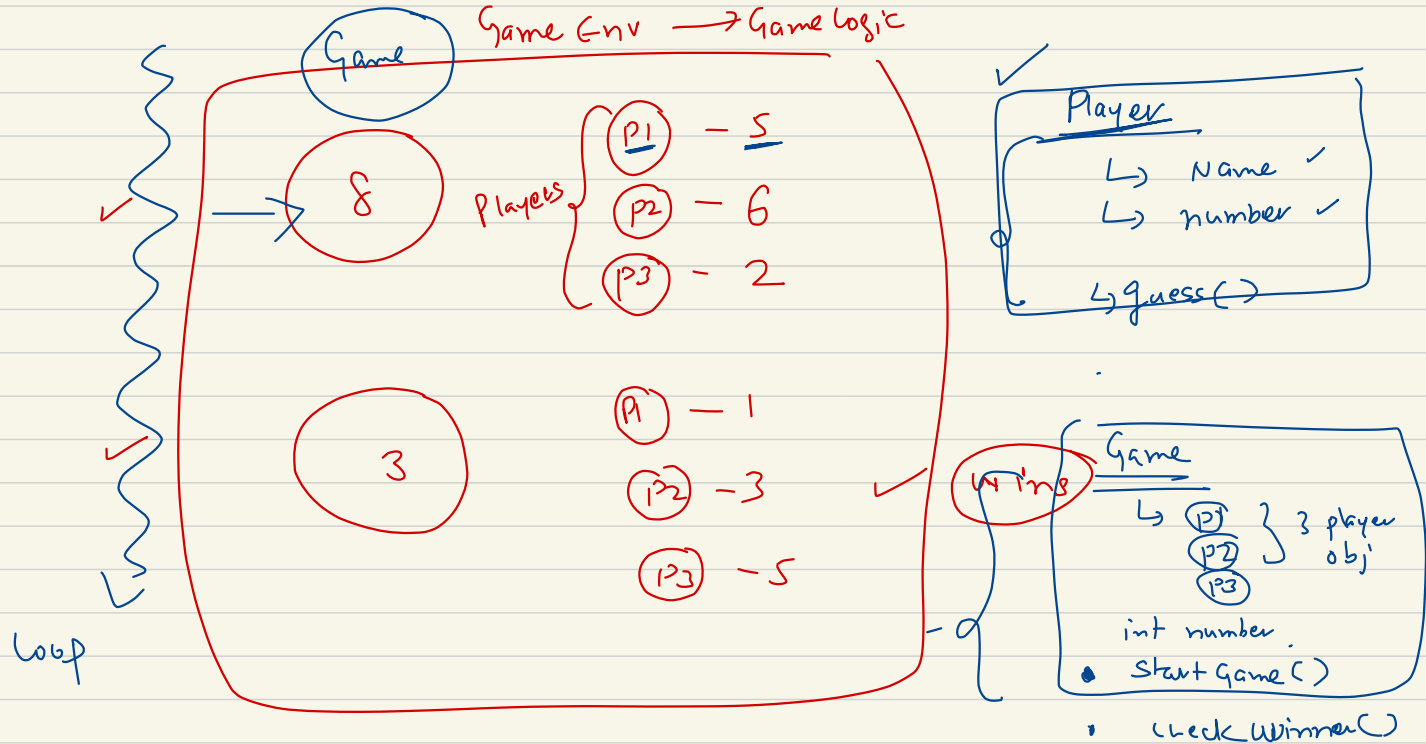 Game Env → Game Logic
Game
8
Players
P1 - 5
P2 - 6
P3 - 2
3
P1 - 1
P2 - 3
P3 - 5
wins
Loop
Player
↳ Name ✓
↳ number ✓
↳ guess()
Game
↳ P1
P2
P3
} 3 player
obj
int number
• StartGame()
• check winner()